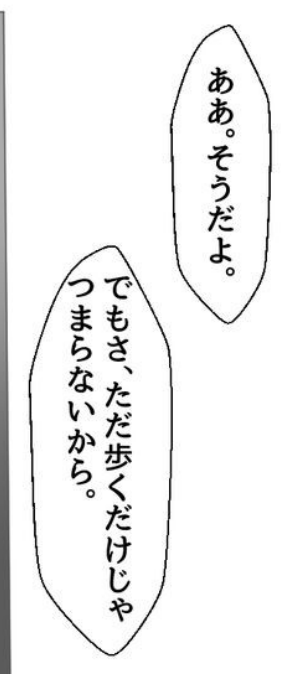 ああ。そうだよ。
でもさ、ただ歩くだけじゃ
つまらないから。